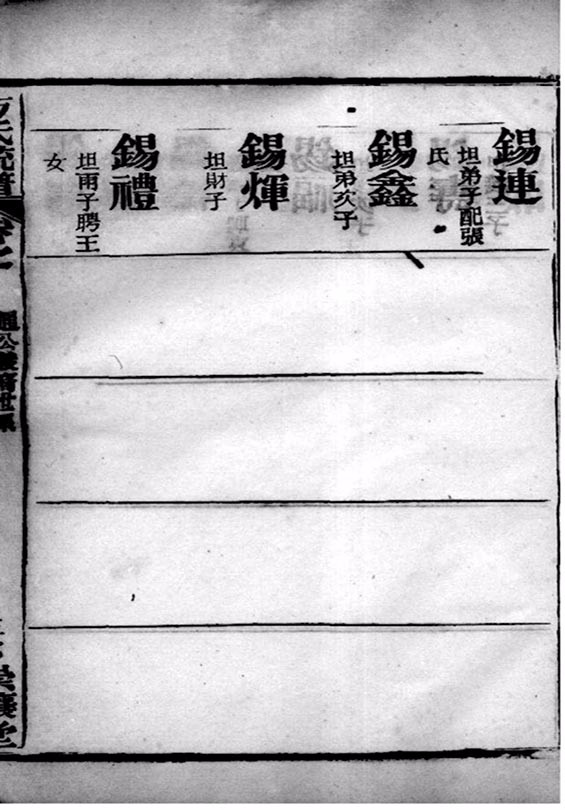 錫連
坦弟子配張
氏
錫鑫
坦弟次子
錫煇
坦財子
錫禮
坦雨子聘王
女